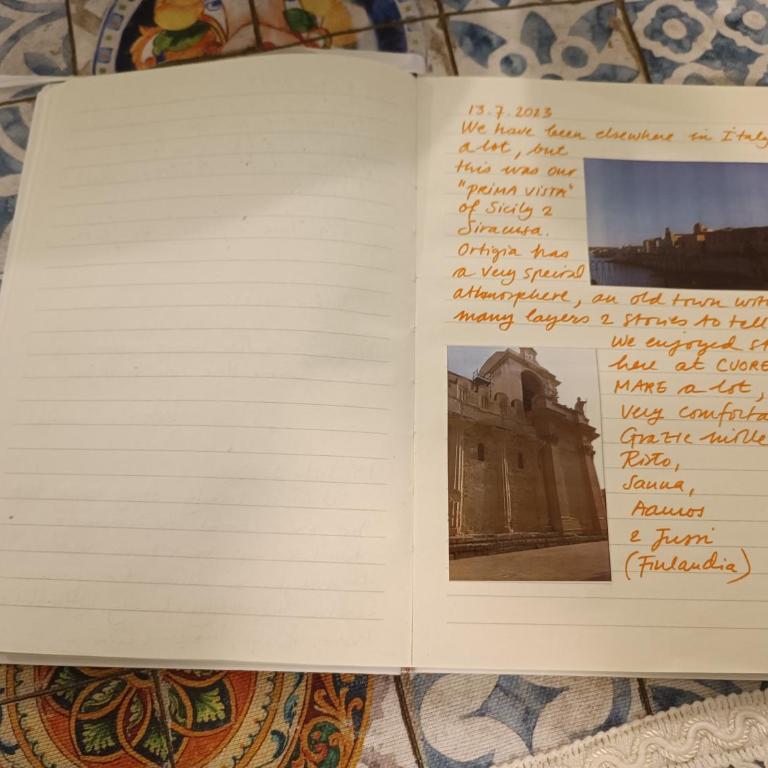 13.7.2023
We have been elsewhere in Italy
a lot, but
this was our
"PRIMA VISTA"
of Sicily &
Siracusa.
Ortigia has
a very special
athmosphere, an old town with
many layers & stories to tell
We enjoyed st
here at CUORE
MARE a lot,
very comforta
Grazie mille
Risto,
Sanna,
Aamos
& Jussi
(Finlandia)